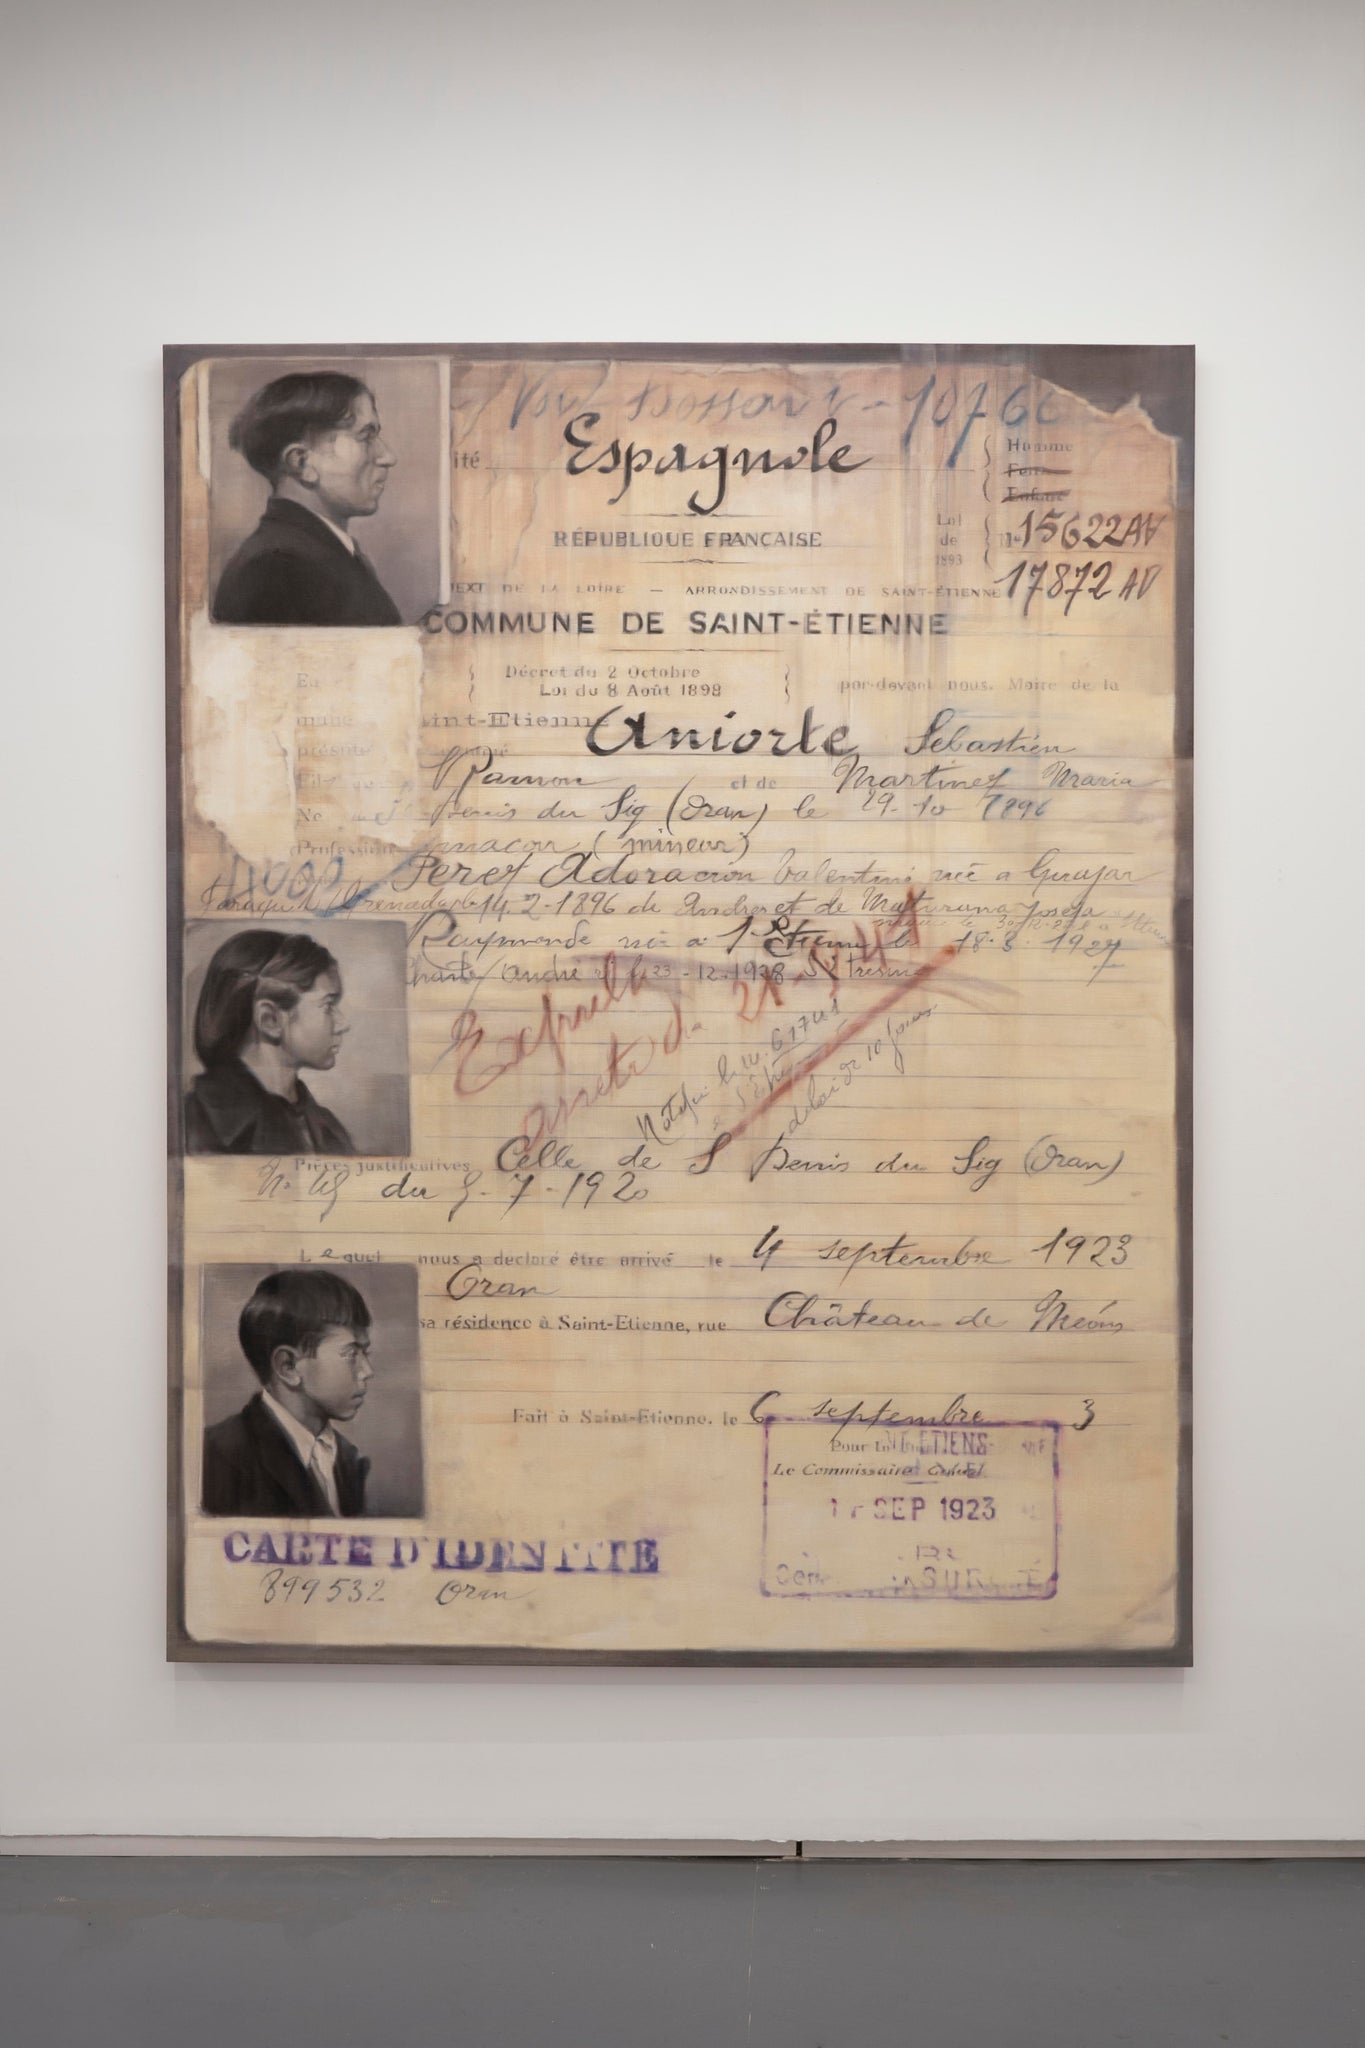 10766
ité Espagnole
Homme
Enfant
RÉPUBLIQUE FRANÇAISE
Loi de 1893 Nº 15622 AV
17872 AV
DE LA LOIRE — ARRONDISSEMENT DE SAINT-ÉTIENNE
COMMUNE DE SAINT-ÉTIENNE
Décret du 2 Octobre
Loi du 8 Août 1893
par-devant nous, Maire de la
int-Etienne Aniorte Sébastien
Ramon et de Martinez Maria
Denis du Sig (Oran) le 29-10 1896
Profession maçon (mineur)
4000 Perez Adoracion Valentine née a
14.2-1896 de Andres et de Maturana Josefa
Raymonde née a St Etienne le 18.3.1927
André 23-12-1928 St Etienne
Expulsé
arrêté du
délai de 10 jours
Pièces justificatives Celle de St Denis du Sig (Oran)
du 5-7-1920
Lequel nous a déclaré être arrivé le 4 septembre 1923
Oran
sa résidence à Saint-Etienne, rue Château de Méons
Fait à Saint-Etienne, le 6 septembre 3
Pour le
Le Commissaire
SEP 1923
SURETÉ
CARTE D'IDENTITE
899532 Oran